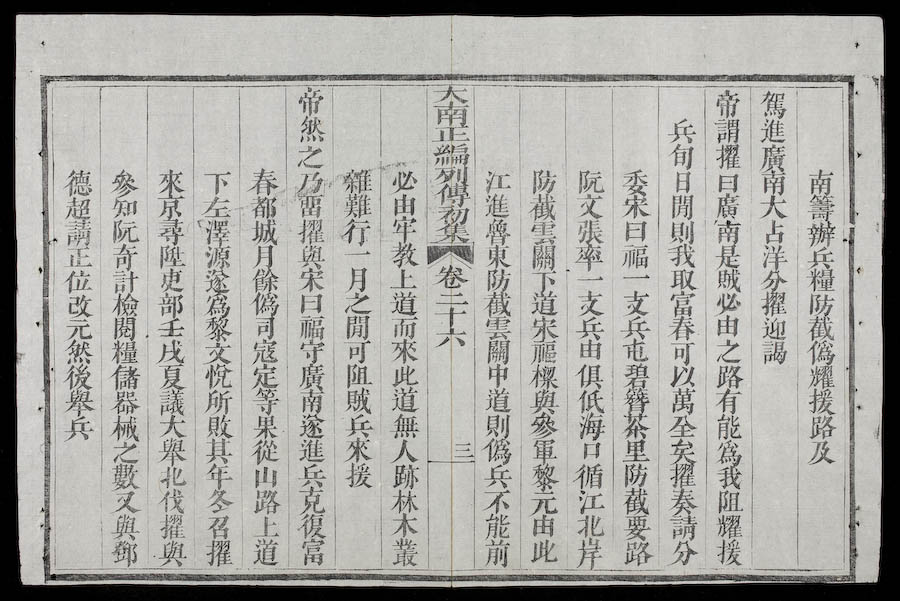 南籌辦兵糧防截僞耀援路及
駕進廣南大占洋分擢迎謁
帝謂擢曰廣南是賊必由之路有能爲我阻耀援
兵旬日間則我取富春可以萬全矣擢奏請分
委宋曰福一支兵屯碧簪茶里防截要路
阮文張率一支兵由俱低海口循江北岸
防截雲關下道宋福樑與參軍黎元由此
江進魯東防截雲關中道則僞兵不能前
大南正編列傳初集 卷二十六 三
必由牢教上道而來此道無人跡林木叢
雜難行一月之間可阻賊兵來援
帝然之乃畱擢與宋曰福守廣南遂進兵克復富
春都城月餘僞司寇定等果從山路上道
下左澤源遂爲黎文悅所敗其年冬召擢
來京尋陞吏部壬戌夏議大舉北伐擢與
參知阮奇計檢閱糧儲器械之數又與鄧
德超請正位改元然後舉兵